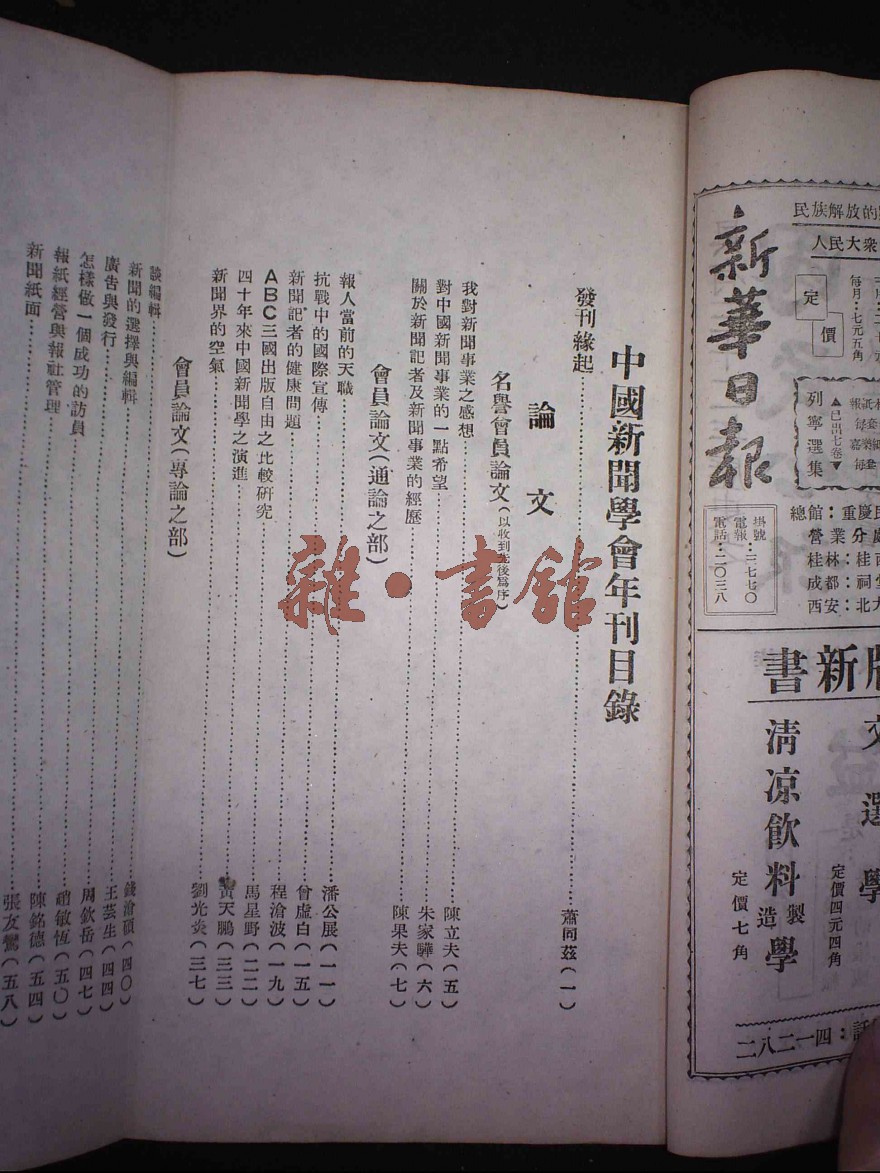 民族解放的
人民大衆
新華日報
定價
每月：七元五角
列寧選集
▲已出七卷▼
掛號
電報：二七七〇
電話：二〇三八
總館：重慶民
營業分處
桂林：桂西
成都：祠堂
西安：北大
書新版
文選學
定價四元四角
清涼飲料製造學
定價七角
二八二一四：話
中國新聞學會年刊目錄
發刊緣起……蕭同茲(一)
論文
名譽會員論文(以收到先後爲序)
我對新聞事業之感想……陳立夫(五)
對中國新聞事業的一點希望……朱家驊(六)
關於新聞記者及新聞事業的經歷……陳果夫(七)
會員論文(通論之部)
報人當前的天職……潘公展(一一)
抗戰中的國際宣傳……曾虛白(一五)
新聞記者的健康問題……程滄波(一九)
ABC三國出版自由之比較研究……馬星野(二二)
四十年來中國新聞學之演進……黃天鵬(三三)
新聞界的空氣……劉光炎(三七)
會員論文(專論之部)
談編輯……錢滄碩(四〇)
新聞的選擇與編輯……王芸生(四四)
廣告與發行……周欽岳(四七)
怎樣做一個成功的訪員……趙敏恆(五〇)
報紙經營與報社管理……陳銘德(五四)
新聞紙面……張友鸞(五八)
雜·書館